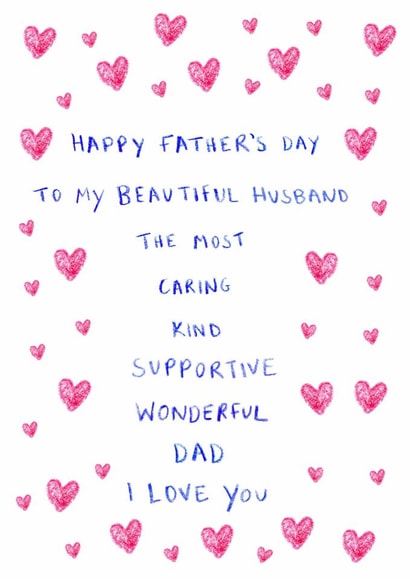 HAPPY FATHER'S DAY
TO MY BEAUTIFUL HUSBAND
THE MOST
CARING
KIND
SUPPORTIVE
WONDERFUL
DAD
I LOVE YOU